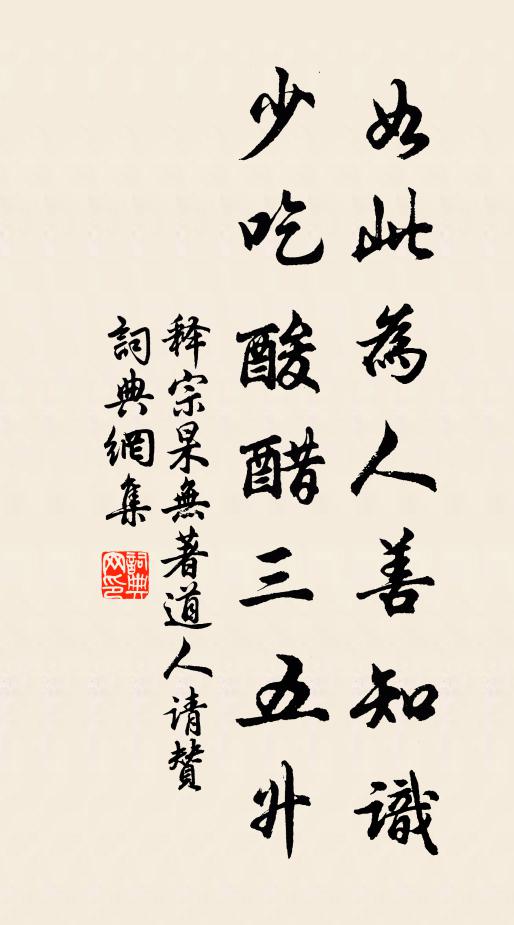 如此為人善知識
少吃酸醋三五升
释宗杲無著道人请赞
詞典網集
詞典網印